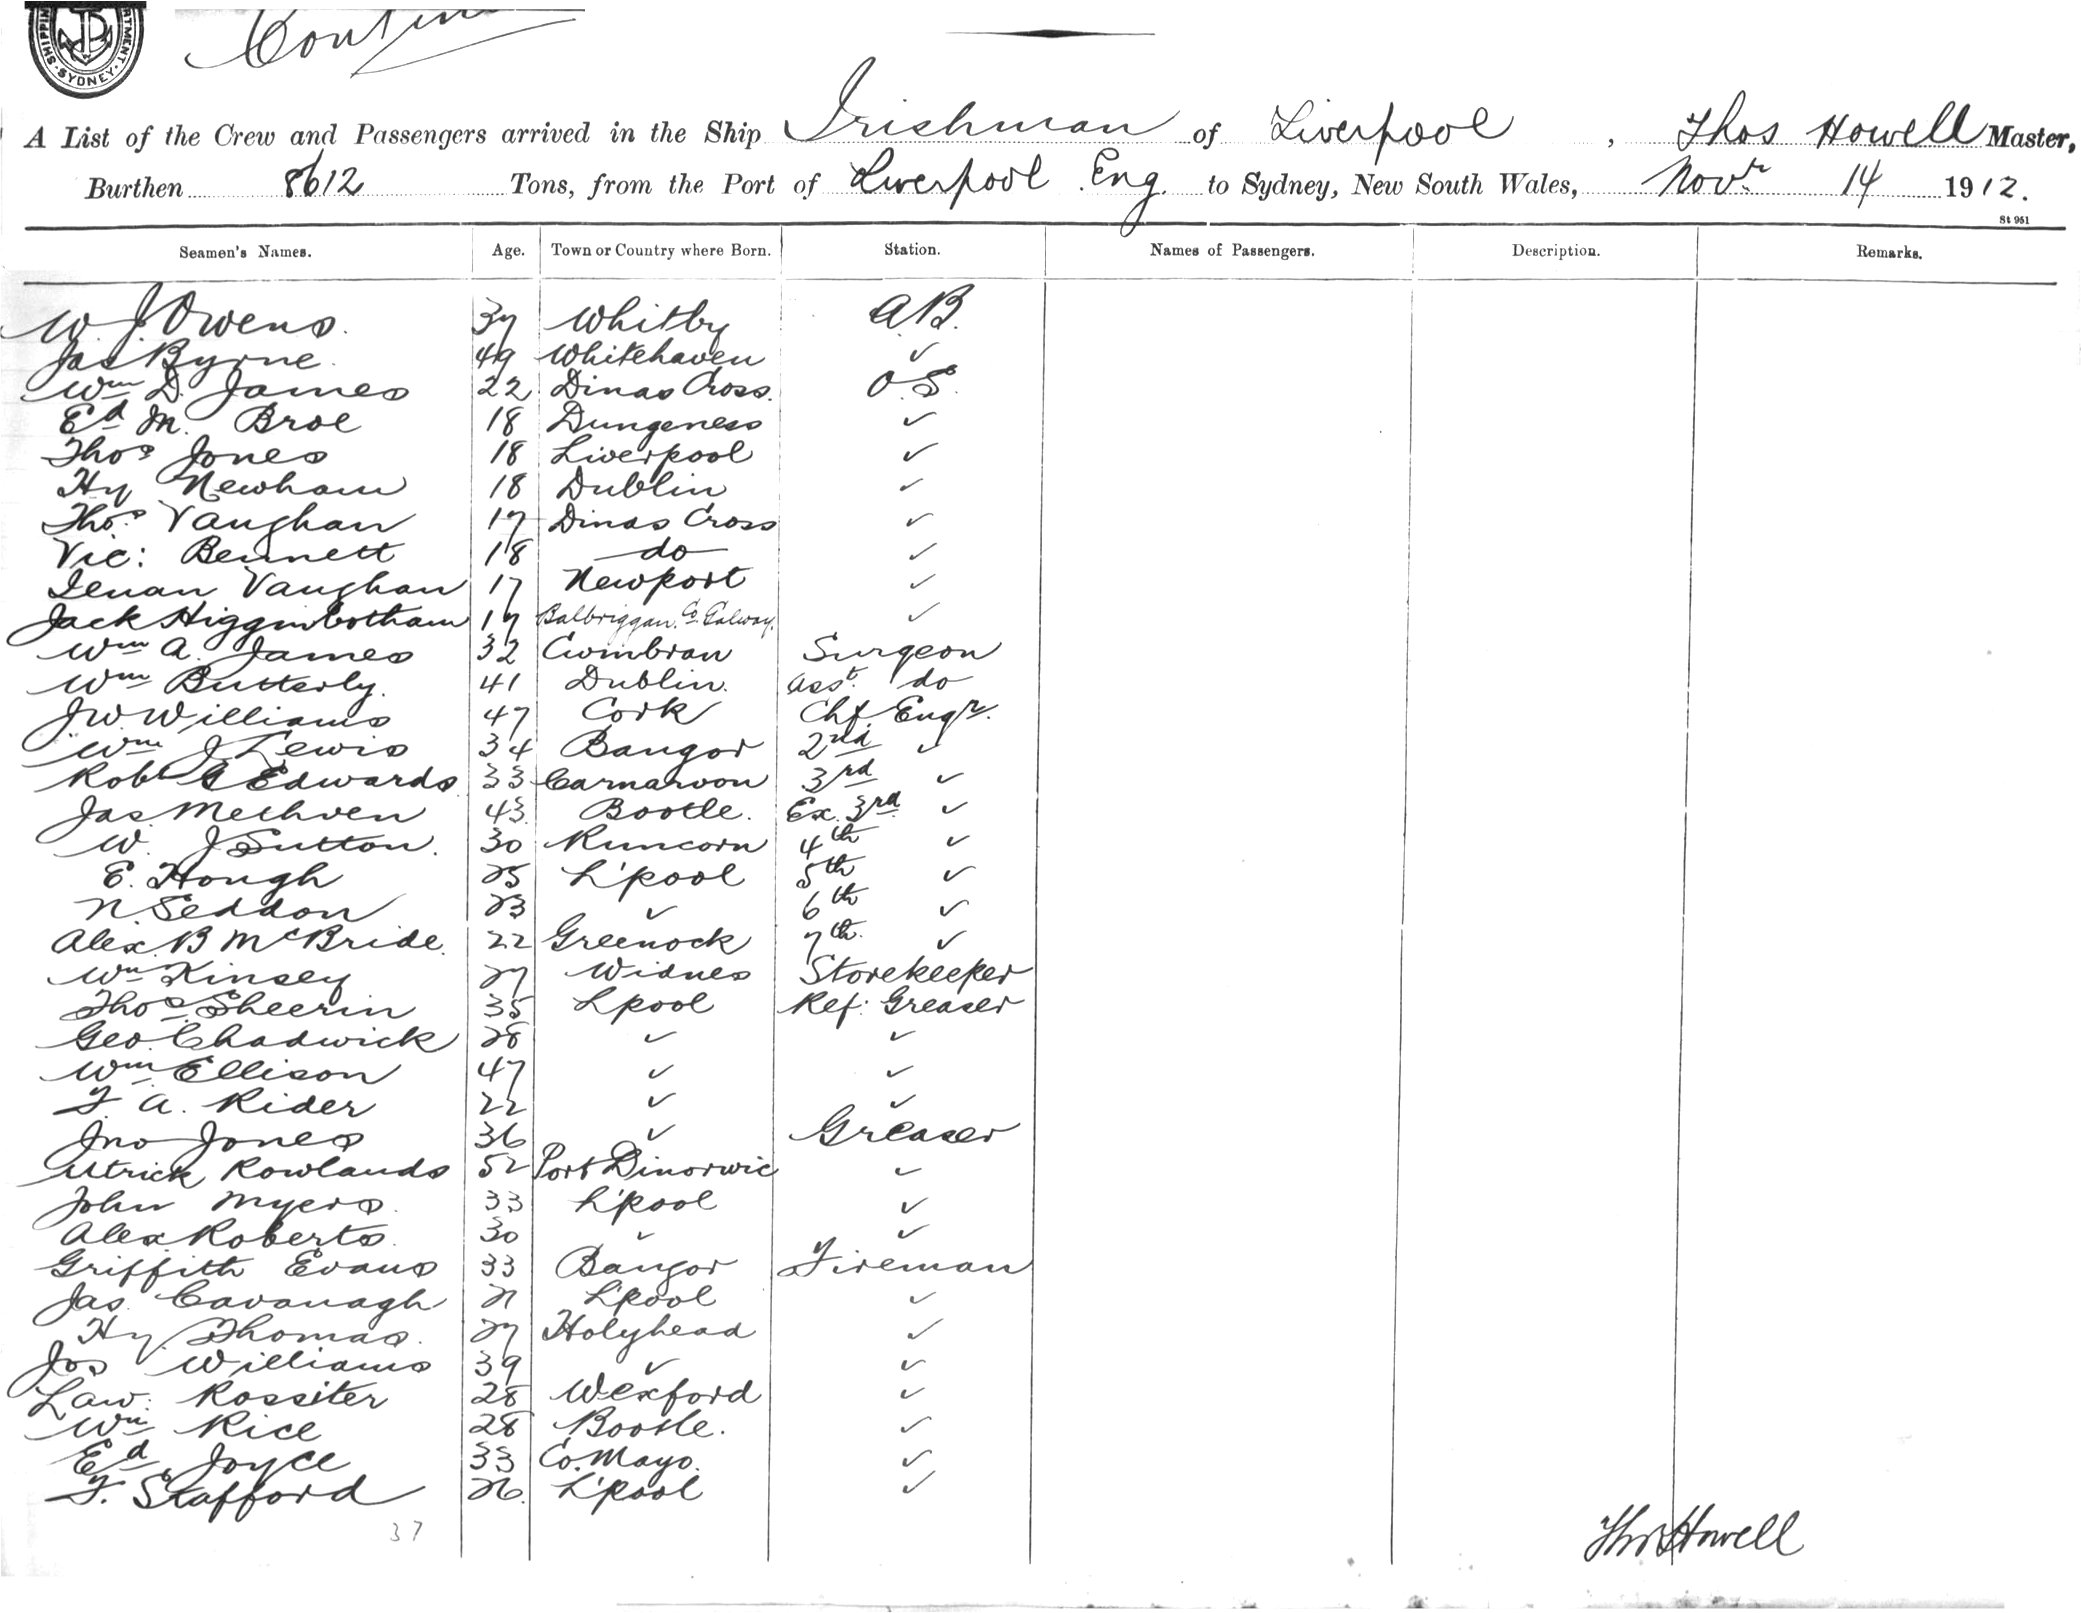 SHIPPIN RTMENT SYDNEY
Contin
A List of the Crew and Passengers arrived in the Ship Irishman of Liverpool, Thos Howell Master,
Burthen 8612 Tons, from the Port of Liverpool Eng. to Sydney, New South Wales, Novr 14 1912.
St 951
Seamen's Names. Age. Town or Country where Born. Station. Names of Passengers. Description. Remarks.
W. J. Owens. 37 Whitby A.B.
Jas Byrne. 49 Whitehaven ✓
Wm D. James 22 Dinas Cross. O.S.
Ed M. Broe 18 Dungeness ✓
Thos Jones 18 Liverpool ✓
Hy Newham 18 Dublin ✓
Thos. Vaughan 17 Dinas Cross ✓
Vic: Bennett 18 do ✓
Ieuan Vaughan 17 Newport ✓
Jack Higginbotham 17 Balbriggan. Co Galway. ✓
Wm A. James 32 Cwmbran Surgeon
Wm Butterly. 41 Dublin. Asst. do
J W Williams 47 Cork Chf. Engr.
Wm J Lewis 34 Bangor 2nd ✓
Robt G Edwards 33 Carnarvon 3rd ✓
Jas Methven 43 Bootle. Ex. 3rd ✓
W. J Sutton. 30 Runcorn 4th ✓
E. Hough 25 L'pool 5th ✓
N. Seddon 23 ✓ 6th ✓
Alex. B McBride. 22 Greenock 7th. ✓
Wm Kinsey 27 Widnes Storekeeper
Thos. Sheerin 35 Lpool Ref: Greaser
Geo. Chadwick 28 ✓ ✓
Wm Ellison 47 ✓ ✓
F. A. Rider 22 ✓ ✓
Jno Jones 36 ✓ Greaser
Utrick Rowlands 52 Port Dinorwic ✓
John Myers. 33 L'pool ✓
Alex. Roberts. 30 ✓ ✓
Griffith Evans 33 Bangor Fireman
Jas. Cavanagh 21 L'pool ✓
Hy. Thomas. 27 Holyhead ✓
Jos Williams 39 ✓ ✓
Law: Rossiter 28 Wexford ✓
Wm Rice 28 Bootle. ✓
Ed Joyce 33 Co. Mayo. ✓
F. Stafford 26. L'pool ✓
37
Thos Howell